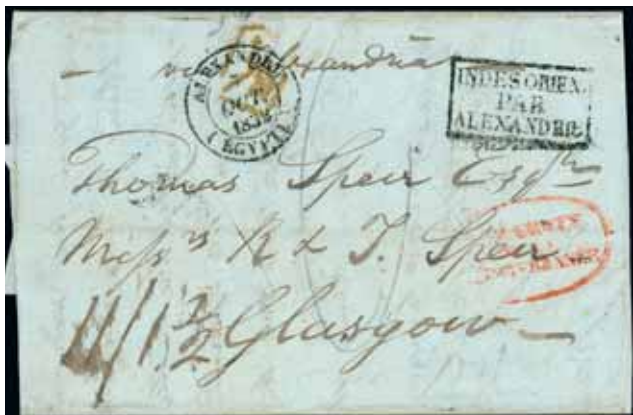 via Alexandria
ALEXANDRIE
OCT.
(EGYPTE)
INDES ORIEN.
PAR
ALEXANDRIE
Thomas Speir Esqre
Messrs R & T. Speir
11/1 3/2 Glasgow